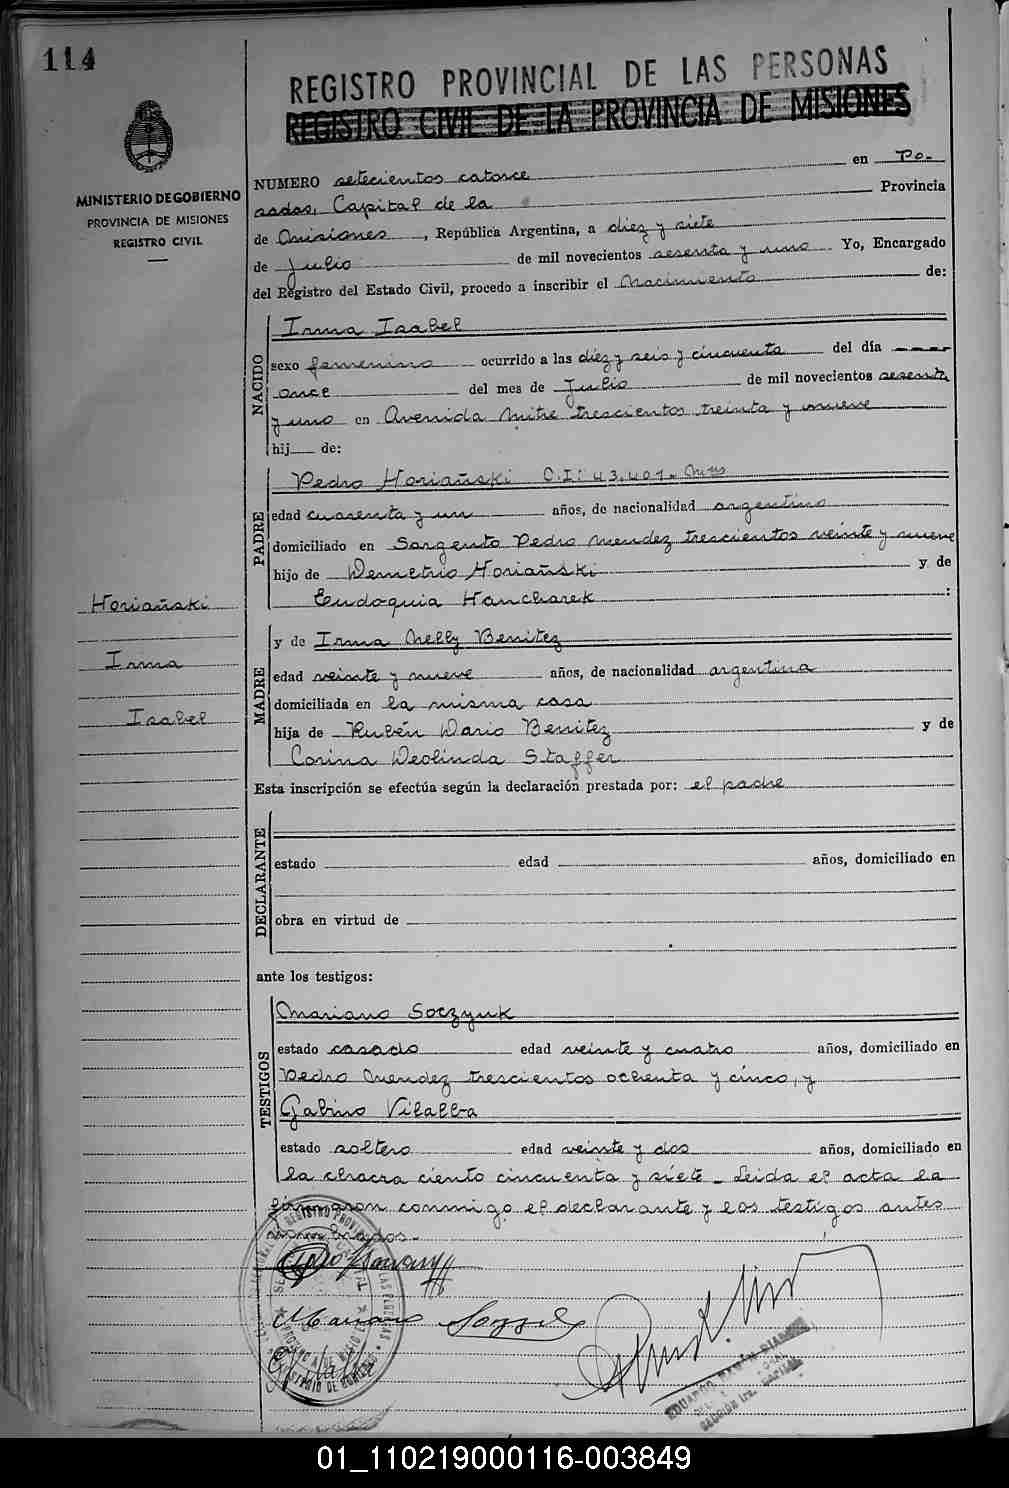 114
REGISTRO PROVINCIAL DE LAS PERSONAS
REGISTRO CIVIL DE LA PROVINCIA DE MISIONES
MINISTERIO DE GOBIERNO
PROVINCIA DE MISIONES
REGISTRO CIVIL
NUMERO setecientos catorce en Po-
sadas, Capital de la Provincia
de Misiones, República Argentina, a diez y siete
de Julio de mil novecientos sesenta y uno Yo, Encargado
del Registro del Estado Civil, procedo a inscribir el Nacimiento de:
NACIDO
Irma Isabel
sexo femenino ocurrido a las diez y seis y cincuenta del día
once del mes de Julio de mil novecientos sesenta
y uno en Avenida Mitre trescientos treinta y nueve
hij de:
PADRE
Pedro Horiañski C.I: 43.401. Mns
edad cuarenta y un años, de nacionalidad argentino
domiciliado en Sargento Pedro Mendez trescientos veinte y nueve
hijo de Demetrio Horiañski y de
Eudoquia Hancharek :
Horiañski
Irma
Isabel
MADRE
y de Irma Nelly Benitez
edad veinte y nueve años, de nacionalidad argentina
domiciliada en la misma casa
hija de Rubén Dario Benitez y de
Corina Deolinda Staffer
Esta inscripción se efectúa según la declaración prestada por: el padre
DECLARANTE
estado edad años, domiciliado en
obra en virtud de
ante los testigos:
TESTIGOS
Mariano Soczyuk
estado casado edad veinte y cuatro años, domiciliado en
Pedro Mendez trescientos ochenta y cinco, y
Gabino Vilalba
estado soltero edad veinte y dos años, domiciliado en
la chacra ciento cincuenta y siete - Leida el acta la
firmaron conmigo el declarante y los testigos antes
nombrados.-
Mariano
EDUARDO RAMÓN
01_110219000116-003849